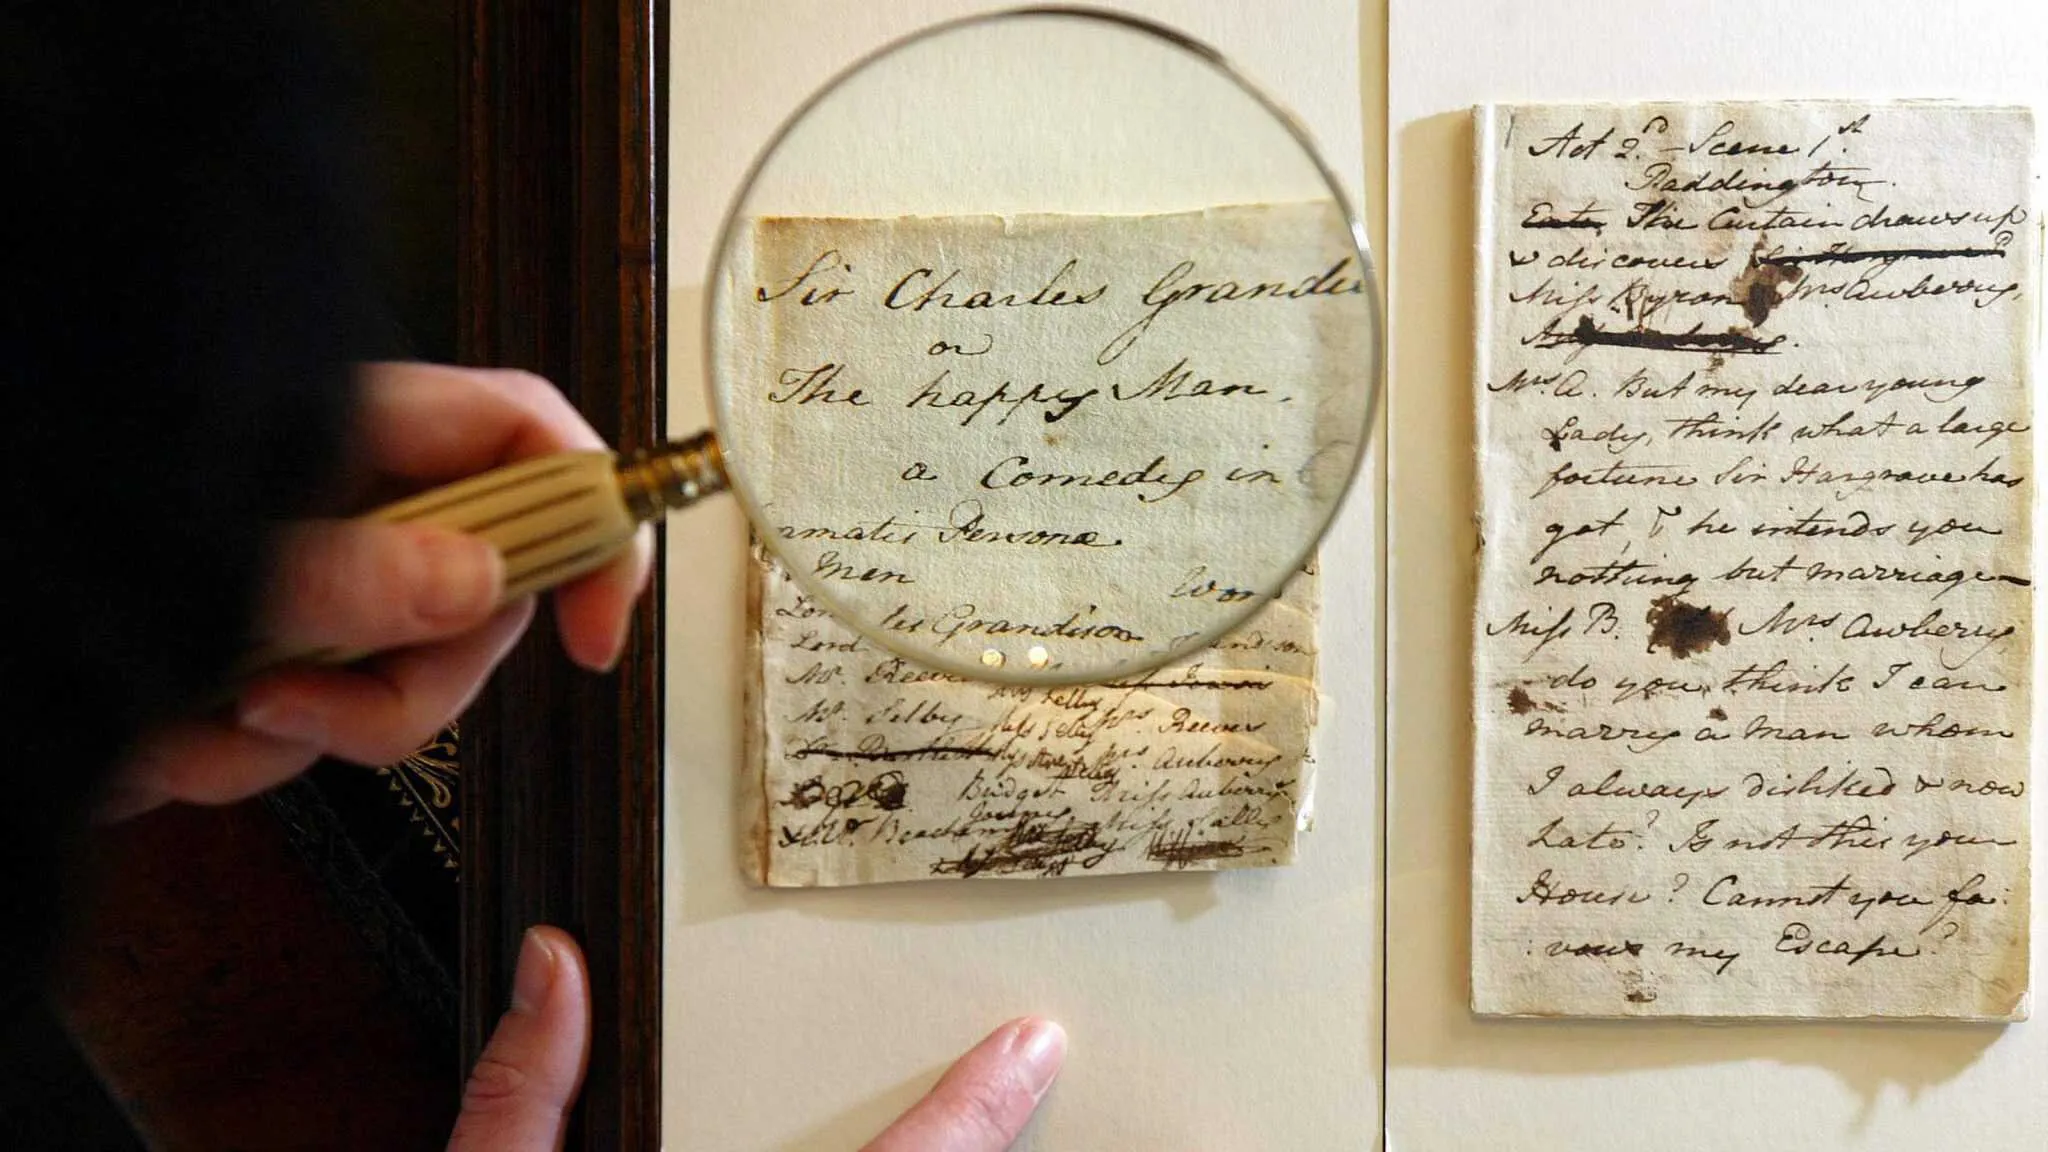 Sir Charles Grandi
or
The happy Man,
a Comedy in
amatis Personæ
Men Wom
Lor les Grandison
Lord andison
Mr. Reeve
Mrs Selby
Mr. Selby Miss Selby Mrs. Reeves
Mrs Awberry
Bridget Miss Awberry
& Mr. Beauchamp Miss Sally
Act 2d. - Scene 1st.
Paddington.
Enter The Curtain draws up
& discovers Sir Hargrave P
Miss Byron & Mrs Awberry,
Mrs. A. But my dear young
Lady, think what a large
fortune Sir Hargrave has
got, & he intends you
nothing but marriage-
Miss B. Mrs Awberry,
do you think I can
marry a Man whom
I always disliked & now
hate? Is not this your
House? Cannot you fa:
:vour my Escape?